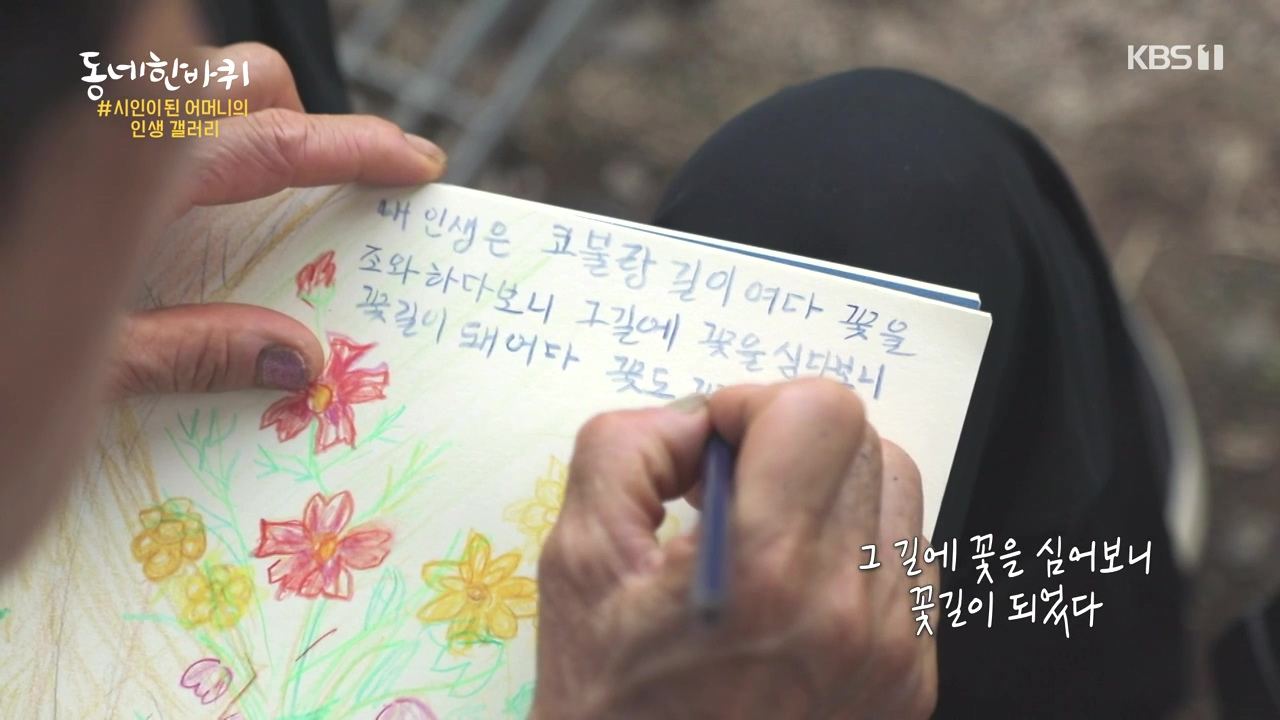 동네한바퀴
#시인이된 어머니의
인생 갤러리
KBS 1
내 인생은 코불랑 길이 여다 꽃을
조와하다보니 그길에 꽃을 심다보니
꽃길이 돼어다 꽃도
그 길에 꽃을 심어보니
꽃길이 되었다